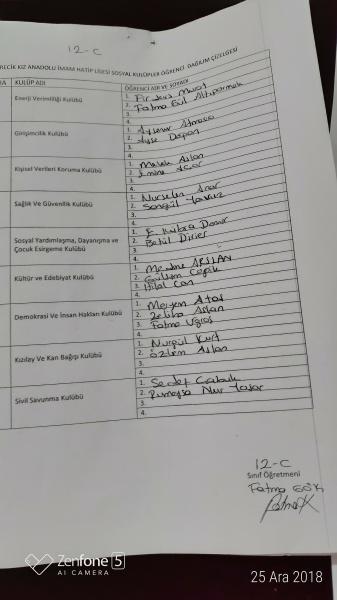 12-C
RECİK KIZ ANADOLU İMAM HATİP LİSESİ SOSYAL KULÜPLER ÖĞRENCİ DAĞILIM ÇİZELGESİ
KULÜP ADI ÖĞRENCİ ADI VE SOYADI
Enerji Verimliliği Kulübü
1. Murat
2. Fatma Gül
3.
Girişimcilik Kulübü
1. Aysenur
2. Ayse Dogan
3.
4.
Kişisel Verileri Koruma Kulübü
1. Melek Aslan
2. Emine Acar
3.
4.
Sağlık Ve Güvenlik Kulübü
1. Nurselin Acar
2. Songül Yavuz
3.
4.
Sosyal Yardımlaşma, Dayanışma ve
Çocuk Esirgeme Kulübü
1. E. Kübra Demir
2. Betül Dirier
3.
4.
Kültür ve Edebiyat Kulübü
1. ARSLAN
2. Gülsüm Çeçik
3. Hilal Can
4.
Demokrasi Ve İnsan Hakları Kulübü
1. Meryem Ataş
2. Zeliha Aslan
3. Fatma Uğraş
4.
Kızılay Ve Kan Bağışı Kulübü
1. Nurgül Kurt
2. Özlem Aslan
3.
4.
Sivil Savunma Kulübü
1. Sedef Çabuk
2. Rumeysa Nur Yazar
3.
4.
12-C
Sınıf Öğretmeni
Fatma
Zenfone 5
AI CAMERA
25 Ara 2018